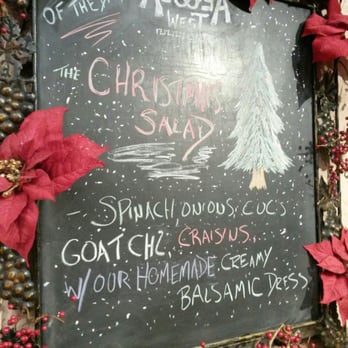 OF THE
WEST
THE
CHRISTMAS
SALAD
- SPINACH, ONIONS, CUCS
GOAT CHZ, CRAISINS,
W/ OUR HOMEMADE CREAMY
BALSAMIC DRESS